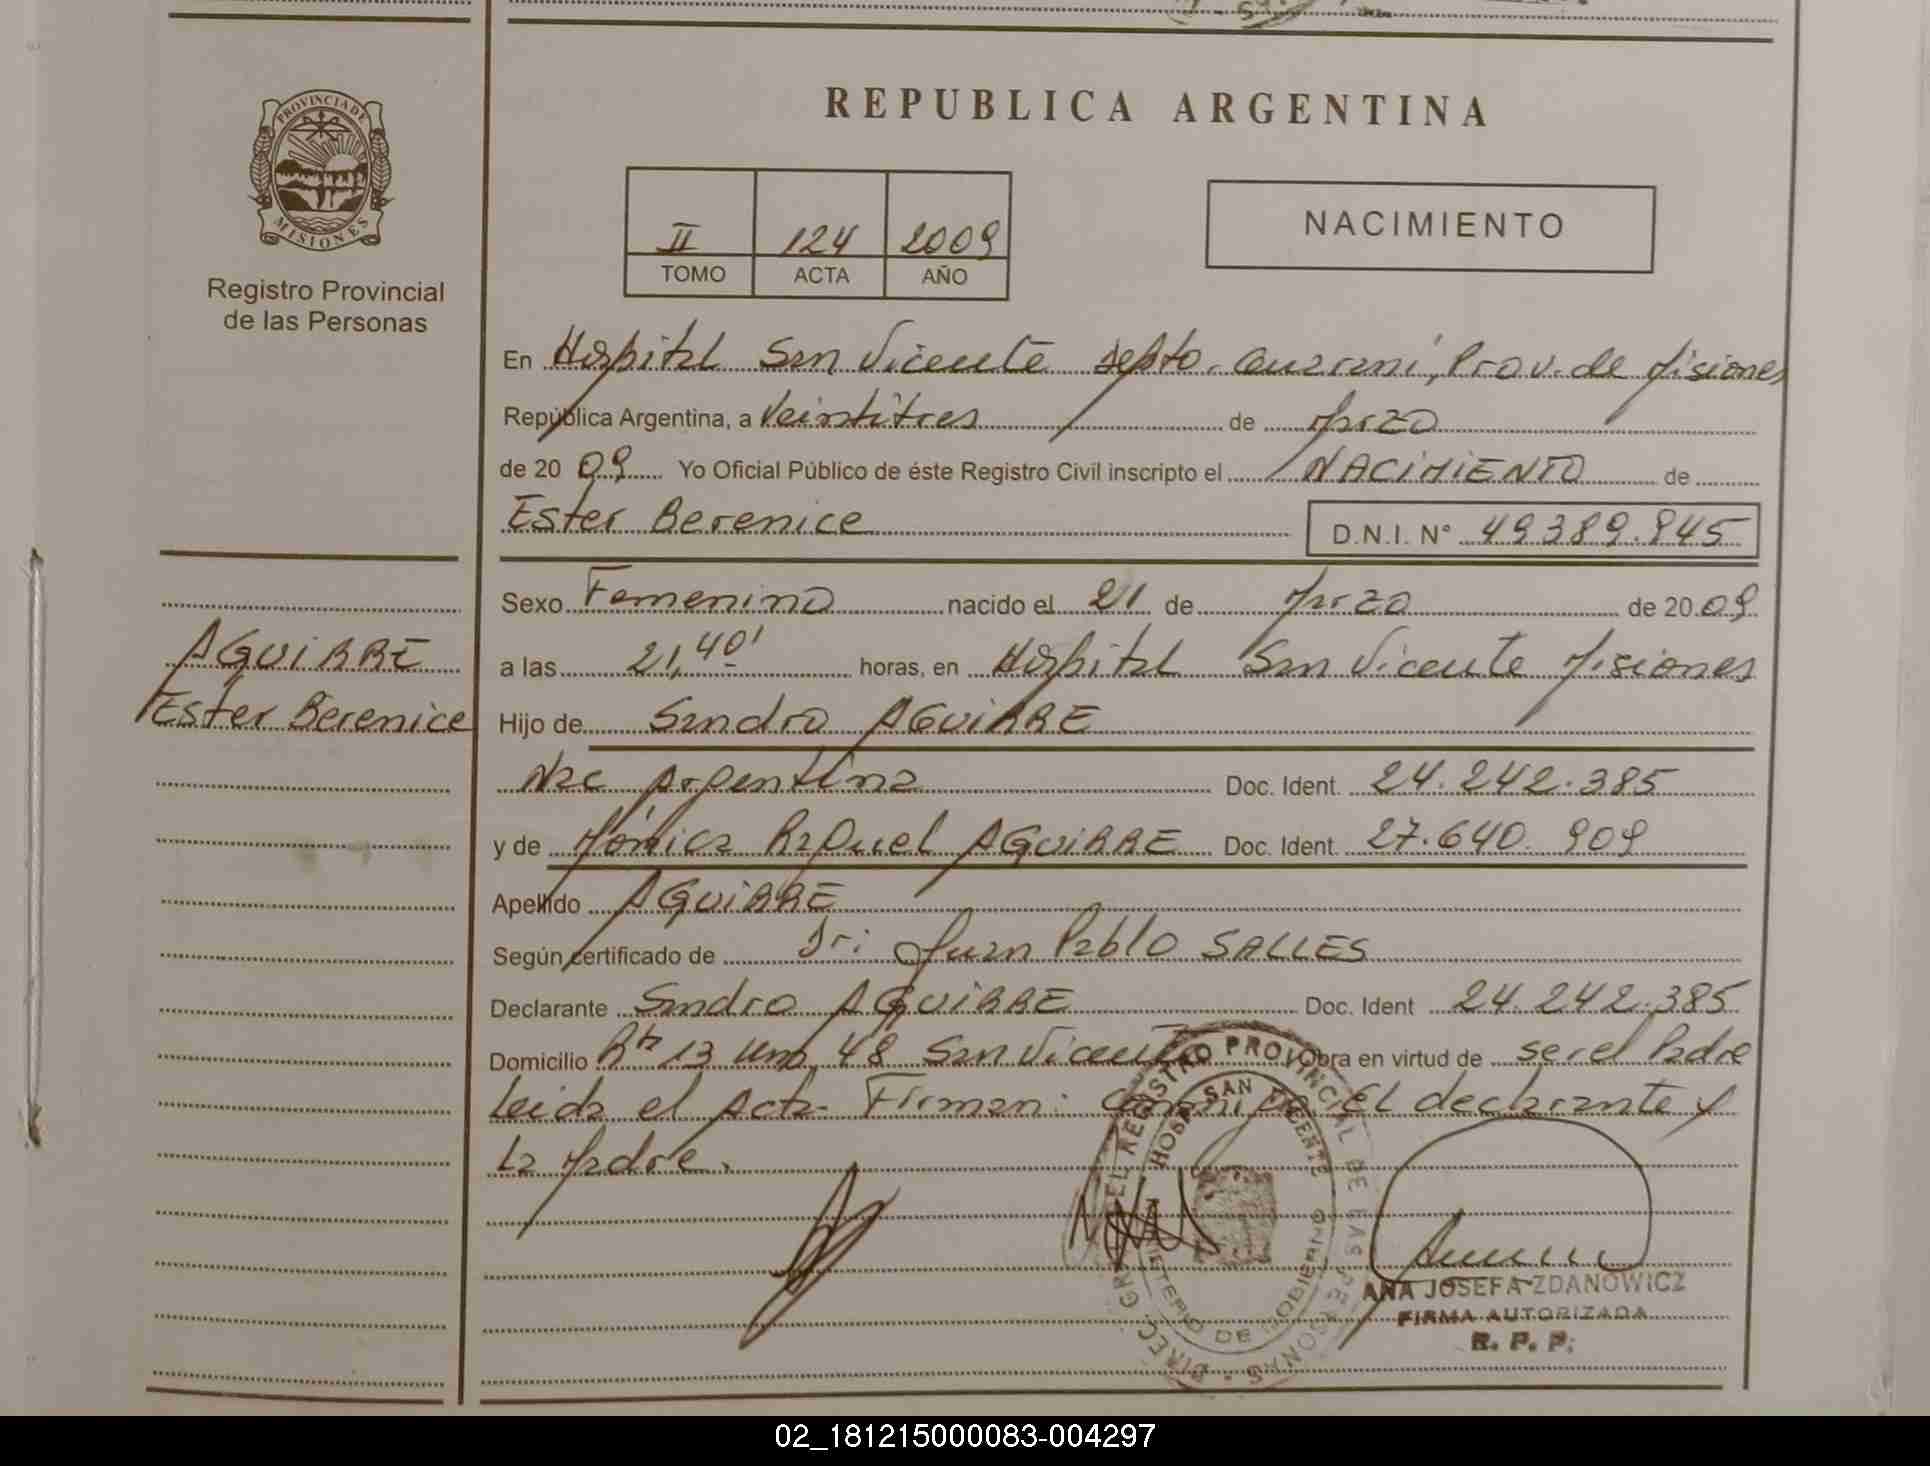 REPUBLICA ARGENTINA
PROVINCIA DE
MISIONES
Registro Provincial
de las Personas
II 124 2009
TOMO ACTA AÑO
NACIMIENTO
En Hospital San Vicente Depto. Guaraní, Prov. de Misiones
República Argentina, a Veintitres de Marzo
de 20 09 Yo Oficial Público de éste Registro Civil inscripto el NACIMIENTO de
Ester Berenice D.N.I. N° 49389.845
Sexo Femenino nacido el 21 de Marzo de 20 09
AGUIRRE
Ester Berenice
a las 21,40' horas, en Hospital San Vicente Misiones
Hijo de Sandro AGUIRRE
Nac Argentina Doc. Ident. 24.242.385
y de Mónica Raquel AGUIRRE Doc. Ident. 27.640.909
Apellido AGUIRRE
Según certificado de Dr: Juan Pablo SALLES
Declarante Sandro AGUIRRE Doc. Ident 24.242.385
Domicilio Rta 13 Km 48 San Vicente Obra en virtud de ser el Padre
Leida el Acta Firman: Conmigo El declarante y
La Madre.
DIREC. GRAL. DEL REGISTRO PROVINCIAL DE LAS PERSONAS
HOSP. SAN VICENTE
MINISTERIO DE GOBIERNO
ANA JOSEFA ZDANOWICZ
FIRMA AUTORIZADA
R. P. P.
02_181215000083-004297